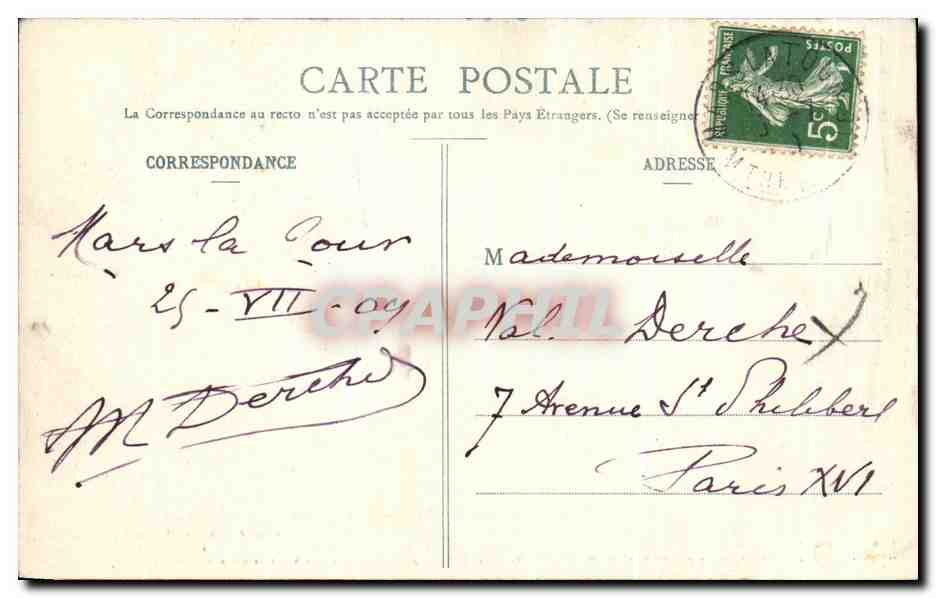 CARTE POSTALE
La Correspondance au recto n'est pas acceptée par tous les Pays Étrangers. (Se renseigner
CORRESPONDANCE
Mars la Tour
25-VII-09
M Derche
ADRESSE
POSTES
RÉPUBLIQUE FRANÇAISE
5c
Mademoiselle
Val. Derche
7 Avenue St Philibert
Paris XVI
CPAPHIL